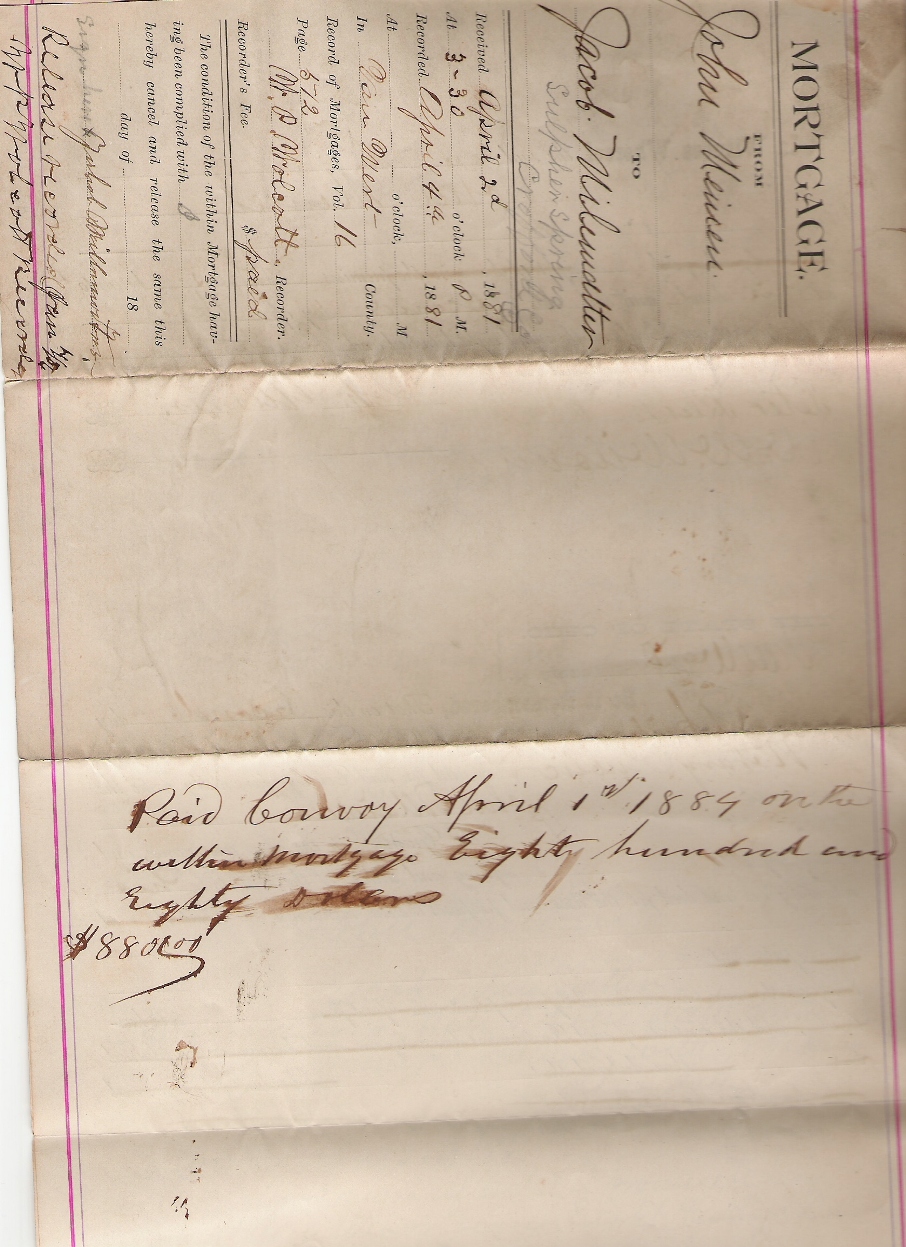 MORTGAGE.
FROM
John Meisen
TO
Jacob Milematter
Sulpher Spring
Crawford Co
Received April 2d, 1881
At 3-30 o'clock P M.
Recorded April 4th, 1881
At o'clock, M
In Van Wert County.
Record of Mortgages, Vol. 16
Page 572
W. P. Wolcott, Recorder.
Recorder's Fee. $ paid
The condition of the within Mortgage hav-
ing been complied with I
hereby cancel and release the same this
day of 18
Release recorded Jan
W P Wolcott Recorder
Paid Convoy April 1st 1884 on the
within Mortgage Eighty hundred and
Eighty Dolars
$880.00